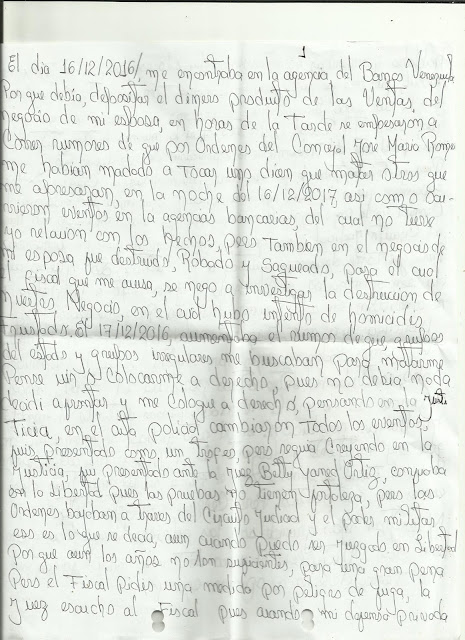 1
El dia 16/12/2016, me encontraba en la agencia del Banco Venezuela
Porque debia, depositar el dinero producto de las Ventas, del
negocio de mi esposa, en horas de la Tarde se empesaron a
Correr rumores de que por Ordenes del Concejal Jose Mario Rome
me habian madado a Tocar unos dicen que matar otros que
me apresaran, en la noche del 16/12/2017, asi como Ocu-
rrieron eventos en la agencias bancarias, del cual no Tiene
yo relacion con los Hechos, pero Tambien en el negocio de
mi esposa fue destruido, Robado y Saqueado, para el cual
el fiscal que me acusa, se nego a Investigar la destruccion de
nuestro Negocio, en el cual hubo intento de homicidio
frustrado. El 17/12/2016, aumentaba el rumor de que grupos
del estado y grupos irregulares me buscaban para matarme
Pense vin o Colocarme a derecho, pues no debia nada
decidi apuntar y me Coloque a derecho, pensando en la Jus
Ticia, en el acto policial cambiaron Todos los eventos,
fui presentado como un Trofeo, pero seguia Creyendo en la
Justicia, fui presentado ante la Juez Betty Yaned Ortiz,
en la Libertad pues las pruebas no Tienen fortaleza, pero las
Ordenes bajaban a traves del Circuito Judicial y el poder militar
eso es lo que se decia, aun cuando Puedo ser juzgado en Libertad
Porque aun los años no son suficientes, para una gran pena
Pero el Fiscal Pidio una medida por peligro de fuga, la
Juez escucho al Fiscal pues cuando mi defensa privada